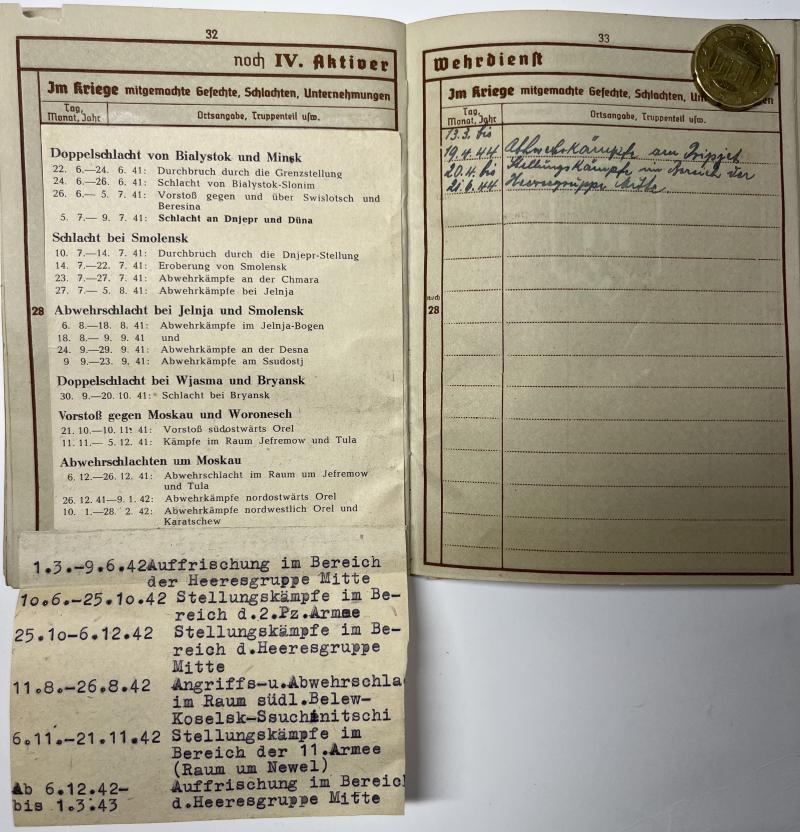 32
noch IV. Aktiver
Im Kriege mitgemachte Gefechte, Schlachten, Unternehmungen
Tag, Monat, Jahr
Ortsangabe, Truppenteil usw.
Doppelschlacht von Bialystok und Minsk
22. 6.—24. 6. 41: Durchbruch durch die Grenzstellung
24. 6.—26. 6. 41: Schlacht von Bialystok-Slonim
26. 6.— 5. 7. 41: Vorstoß gegen und über Swislotsch und
Beresina
5. 7.— 9. 7. 41: Schlacht an Dnjepr und Düna
Schlacht bei Smolensk
10. 7.—14. 7. 41: Durchbruch durch die Dnjepr-Stellung
14. 7.—22. 7. 41: Eroberung von Smolensk
23. 7.—27. 7. 41: Abwehrkämpfe an der Chmara
27. 7.— 5. 8. 41: Abwehrkämpfe bei Jelnja
28 Abwehrschlacht bei Jelnja und Smolensk
6. 8.—18. 8. 41: Abwehrkämpfe im Jelnja-Bogen
18. 8.— 9. 9. 41 und
24. 9.—29. 9. 41: Abwehrkämpfe an der Desna
9 9.—23. 9. 41: Abwehrkämpfe am Ssudostj
Doppelschlacht bei Wjasma und Bryansk
30. 9.—20. 10. 41: Schlacht bei Bryansk
Vorstoß gegen Moskau und Woronesch
21. 10.—10. 11. 41: Vorstoß südostwärts Orel
11. 11.— 5. 12. 41: Kämpfe im Raum Jefremow und Tula
Abwehrschlachten um Moskau
6. 12.—26. 12. 41: Abwehrschlacht im Raum um Jefremow
und Tula
26. 12. 41—9. 1. 42: Abwehrkämpfe nordostwärts Orel
10. 1.—28. 2. 42: Abwehrkämpfe nordwestlich Orel und
Karatschew
1.3.-9.6.42 Auffrischung im Bereich
der Heeresgruppe Mitte
10.6.-25.10.42 Stellungskämpfe im Be-
reich d.2.Pz.Armee
25.10-6.12.42 Stellungskämpfe im Be-
reich d.Heeresgruppe
Mitte
11.8.-26.8.42 Angriffs-u.Abwehrschla
im Raum südl.Belew-
Koselsk-Ssuchinitschi
6.11.-21.11.42 Stellungskämpfe im
Bereich der 11.Armee
(Raum um Newel)
Ab 6.12.42- Auffrischung im Bereic
bis 1.3.43 d.Heeresgruppe Mitte
33
Wehrdienst
Im Kriege mitgemachte Gefechte, Schlachten, Unternehmungen
Tag, Monat, Jahr
Ortsangabe, Truppenteil usw.
13.3. bis
19.4.44 Abwehrkämpfe am Pripjet
20.4. bis Stellungskämpfe im Bereich der
21.6.44 Heeresgruppe Mitte.
noch
28